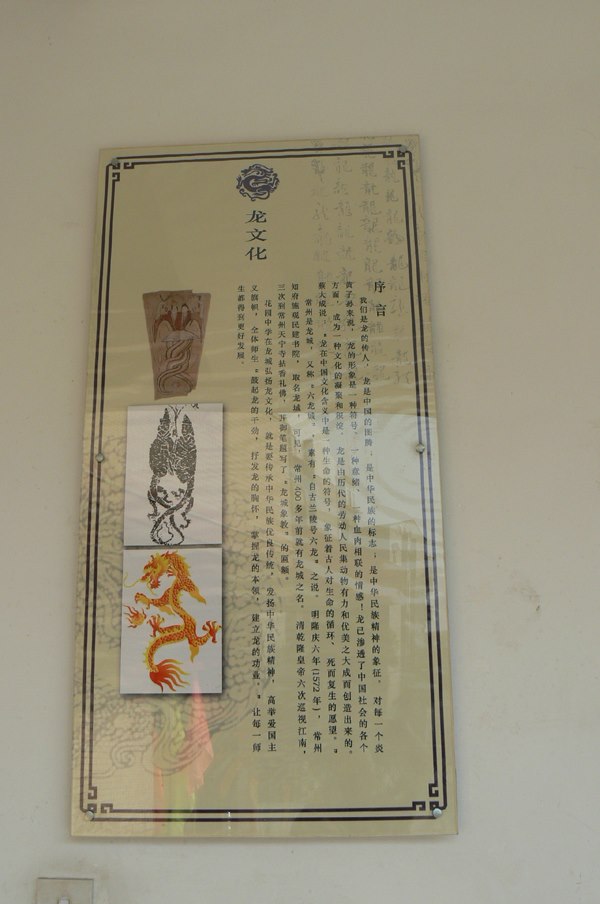 龙文化
序言
我们是龙的传人，龙是中国的图腾；是中华民族的标志；是中华民族精神的象征。对每一个炎
黄子孙来说，龙的形象是一种符号、一种意绪、一种血肉相联的情感！龙已渗透了中国社会的各个
方面，成为一种文化的凝聚和积淀。龙是由历代的劳动人民集动物有力和优美之大成而创造出来的。
蔡大成说：“龙在中国文化含义中是一种生命的符号，象征着古人对生命的循环、死而复生的愿望。”
常州是龙城，又称“六龙城”，素有“自古兰陵号六龙”之说。明隆庆六年(1572年)，常州
知府施观民建书院，取名龙城，可见，常州400多年前就有龙城之名。清乾隆皇帝六次巡视江南，
三次到常州天宁寺拈香礼佛，并御笔题写了“龙城象教”的匾额。
花园中学在龙城弘扬龙文化，就是要传承中华民族优良传统，发扬中华民族精神，高举爱国主
义旗帜，全体师生“鼓起龙的干劲，抒发龙的胸怀，掌握龙的本领，建立龙的功业。”让每一师
生都得到更好发展。